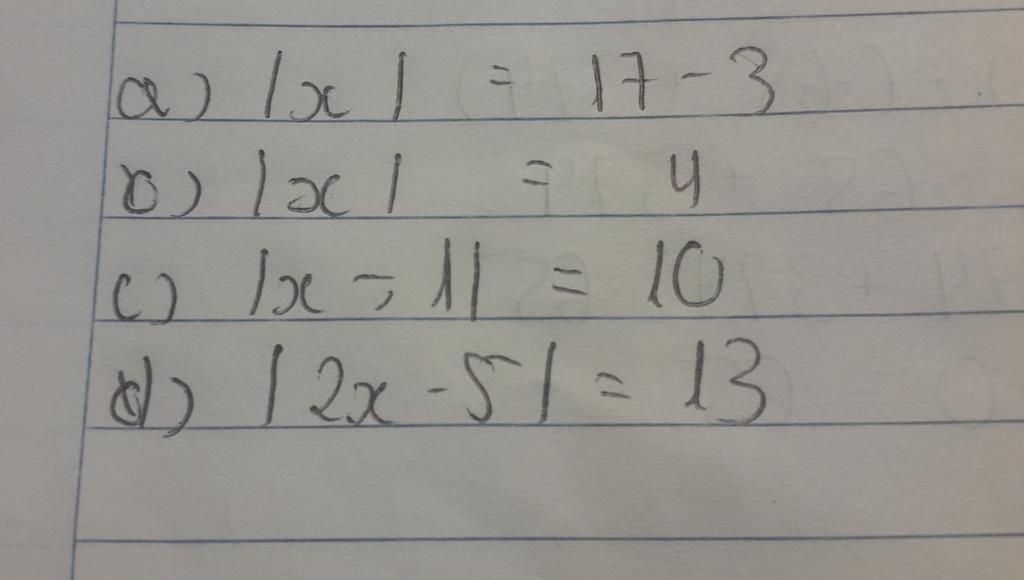 a) |x| = 17 - 3
b) |x| = 4
c) |x - 1| = 10
d) |2x - 5| = 13